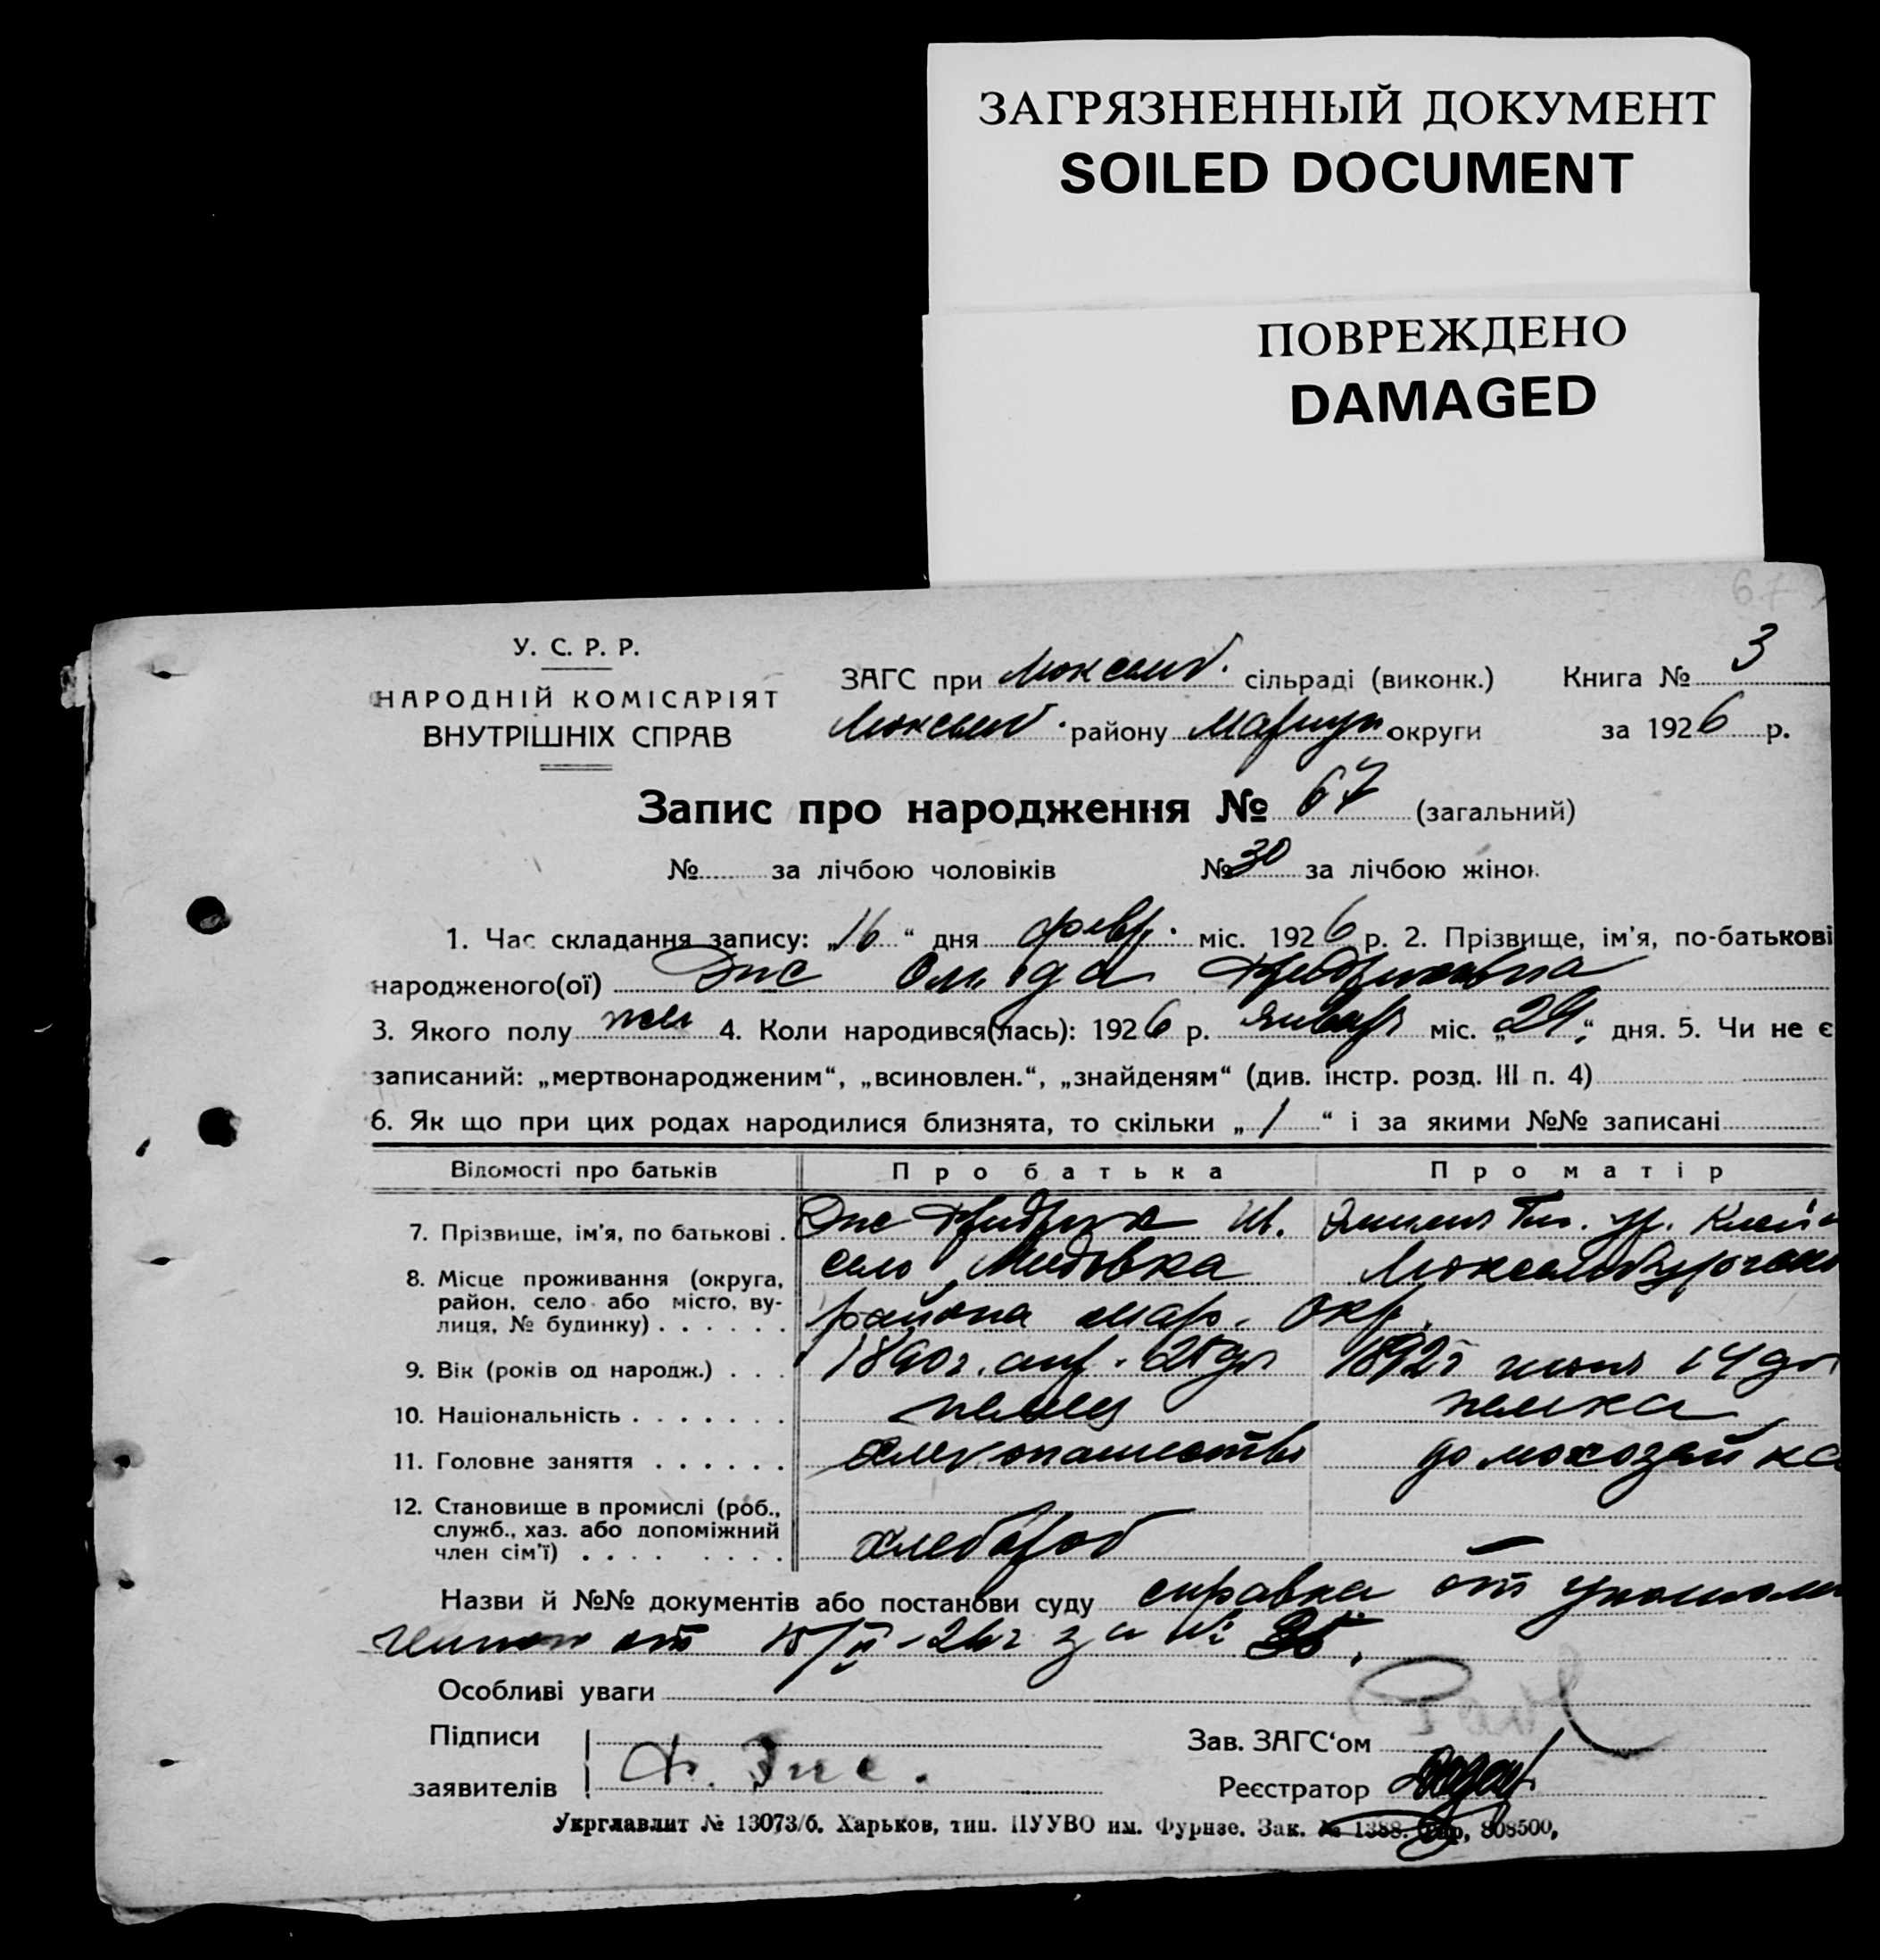 ЗАГРЯЗНЕННЫЙ ДОКУМЕНТ
SOILED DOCUMENT
ПОВРЕЖДЕНО
DAMAGED
67
У. С. Р. Р.
НАРОДНІЙ КОМІСАРІЯТ
ВНУТРІШНІХ СПРАВ
ЗАГС при Люксемб. сільраді (виконк.) Книга № 3
Люксемб. району Мариуп округи за 1926 р.
Запис про народження № 67 (загальний)
№ за лічбою чоловіків № 30 за лічбою жінок
1. Час складання запису: „16“ дня февр. міс. 1926 р. 2. Прізвище, ім’я, по-батькові
народженого(ої) Фридриховна
3. Якого полу жен 4. Коли народився(лась): 1926 р. январ міс. „29“ дня. 5. Чи не є
записаний: „мертвонародженим“, „всиновлен.“, „знайденям“ (див. інстр. розд. III п. 4)
6. Як що при цих родах народилися близнята, то скільки „/“ і за якими №№ записані
Відомості про батьків Про батька Про матір
7. Прізвище, ім’я, по батькові . Фридрих Ив.
8. Місце проживання (округа, село
район, село або місто, ву-
лиця, № будинку) . . . . . . района мар. окр.
9. Вік (років од народж.) . . . 1890 г. 25 дн 1892 г июня 14 дн
10. Національність . . . . . . . немец немка
11. Головне заняття . . . . . . хлебопашество домохозяйка
12. Становище в промислі (роб.,
служб., хаз. або допоміжний
член сім’ї) . . . . . . . . хлебороб —
Назви й №№ документів або постанови суду справка от уполномо
ченного от 15/II-26 г за № 35.
Особливі уваги
Підписи
заявителів
Зав. ЗАГС‘ом
Реєстратор
Укрглавлит № 13073/б. Харьков, тип. ПУУВО им. Фрунзе. Зак. № 1388. 808500,